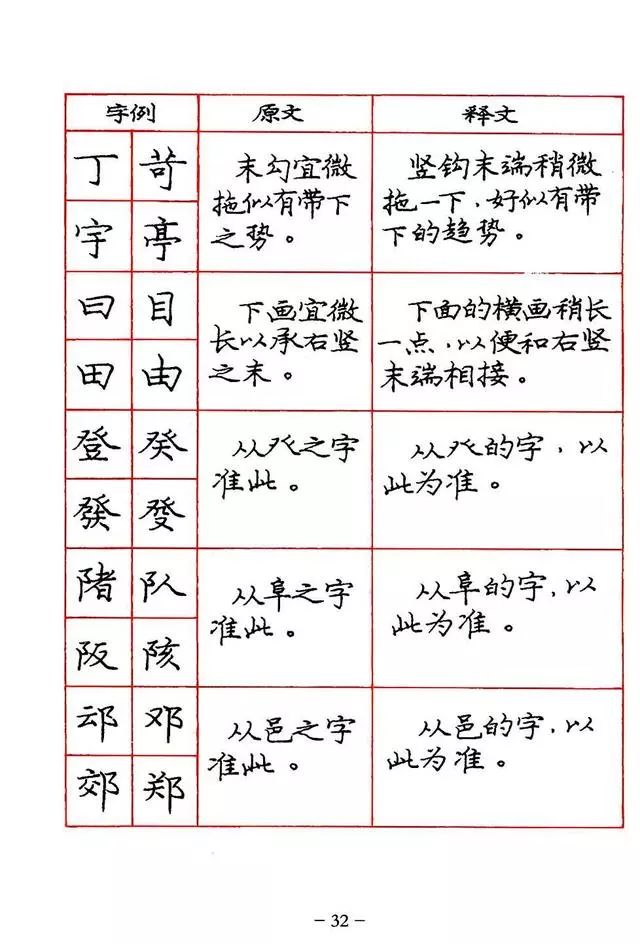 字例 原文 释文
丁 苛
宇 亭
末勾宜微
拖似有带下
之势。
竖钩末端稍微
拖一下,好似有带
下的趋势。
曰 目
田 由
下画宜微
长以承右竖
之末。
下面的横画稍长
一点,以便和右竖
末端相接。
登 癸
發 癹
从癶之字
准此。
从癶的字,以
此为准。
陼 队
阪 陔
从阜之字
准此。
从阜的字,以
此为准。
邧 邓
郊 郑
从邑之字
准此。
从邑的字,以
此为准。
- 32 -